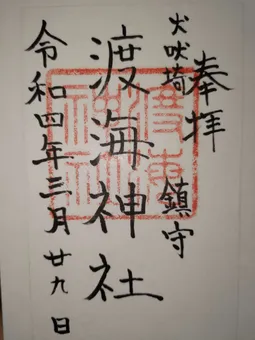 奉拝
犬吠埼
鎮守
渡海神社
令和四年三月廿九日